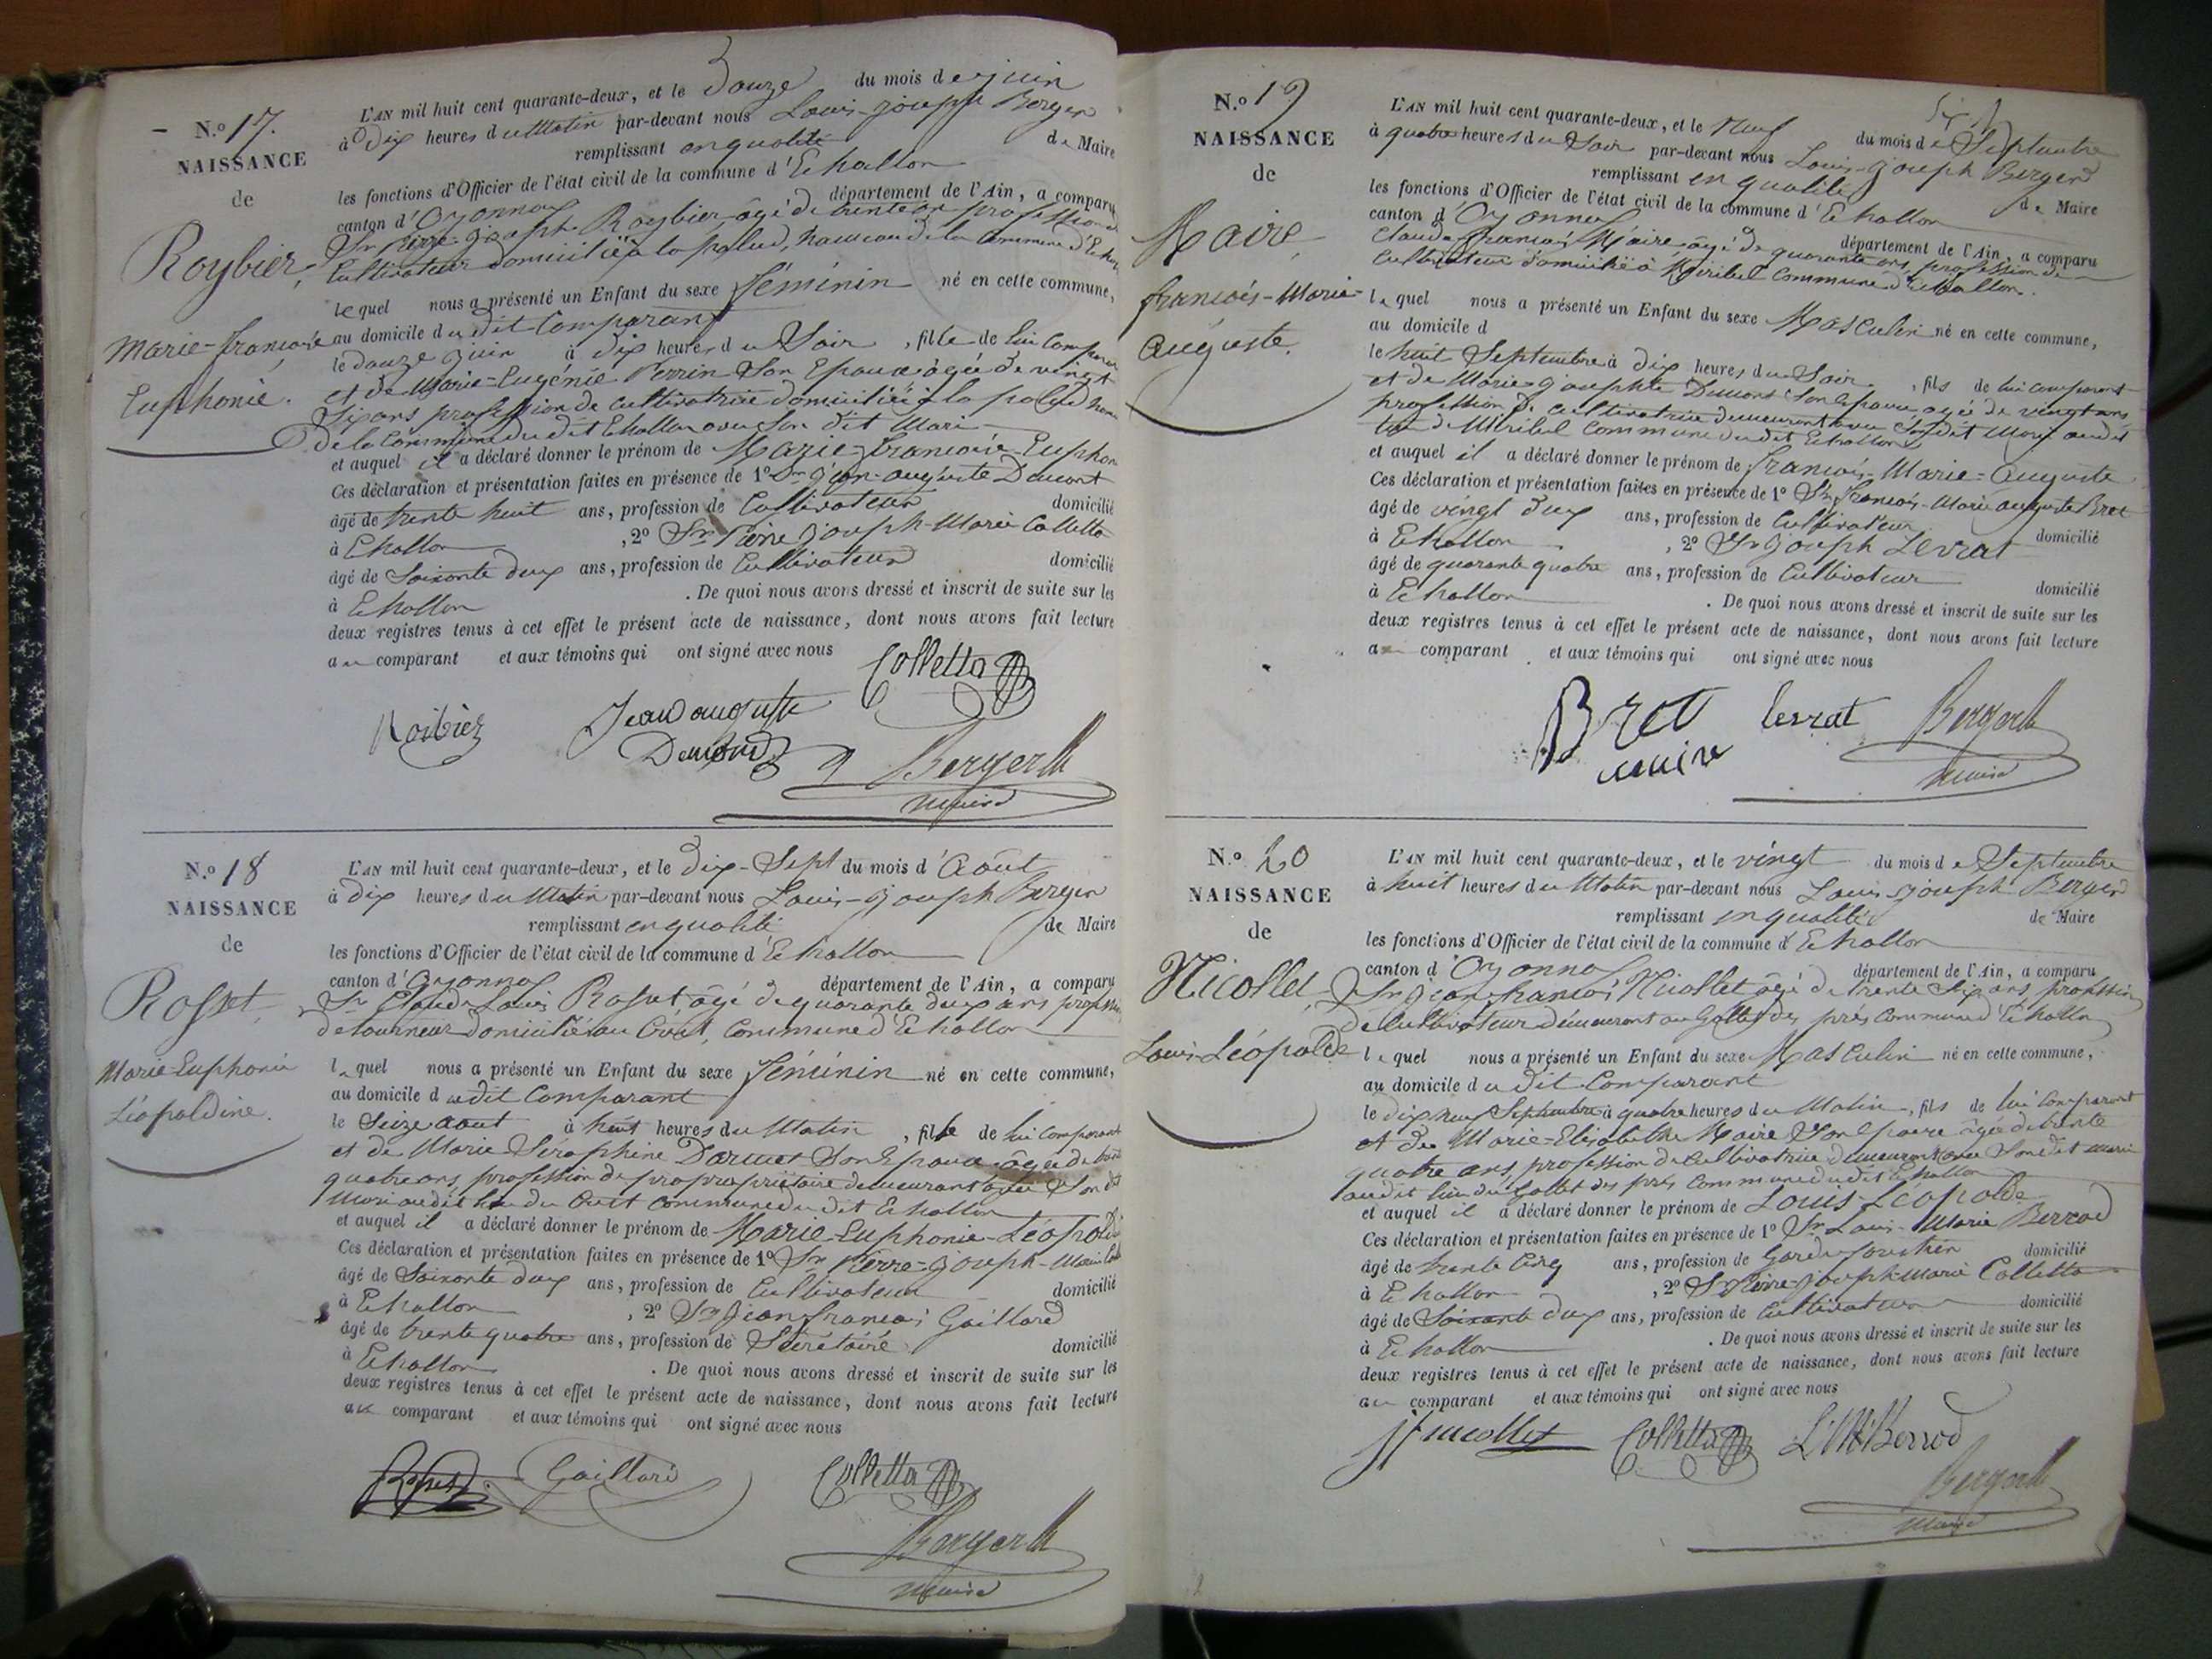 N.º 17.
NAISSANCE
de
Roybier,
Marie-françoise
Euphonie.
L'AN mil huit cent quarante-deux, et le Douze du mois de juin
à Dix heures du Matin par-devant nous Louis-joseph Berger
remplissant en qualité de Maire
les fonctions d'Officier de l'état civil de la commune d'Echallon
canton d'Oyonnax département de l'Ain, a comparu
Sr Pierre-joseph Roybier âgé de trente ans profession de
Cultivateur domicilié à la palud, hameau de la Commune d'Echallon
lequel nous a présenté un Enfant du sexe féminin né en cette commune,
au domicile du dit Comparant
le douze juin à dix heures du Soir, fille de lui Comparant
et de Marie-Eugénie Perrin Son Epouse âgée de vingt
Six ans profession de cultivatrice domiciliée à la palud
de la Commune du dit Echallon avec Son dit Mari
et auquel il a déclaré donner le prénom de Marie-françoise-Euphon
Ces déclaration et présentation faites en présence de 1º Sr jean-auguste Dumont
âgé de trente huit ans, profession de Cultivateur domicilié
à Echallon, 2º Sr Pierre joseph-Marie Colletta
âgé de Soixante deux ans, profession de Cultivateur domicilié
à Echallon. De quoi nous avons dressé et inscrit de suite sur les
deux registres tenus à cet effet le présent acte de naissance, dont nous avons fait lecture
au comparant et aux témoins qui ont signé avec nous
Colletta
Roibiez
Jean auguste
Berger
maire
N.º 18
NAISSANCE
de
Rosset
Marie Euphonie
Léopoldine.
L'AN mil huit cent quarante-deux, et le Dix-Sept du mois d'Août
à dix heures du Matin par-devant nous Louis-joseph Berger
remplissant en qualité de Maire
les fonctions d'Officier de l'état civil de la commune d'Echallon
canton d'Oyonnax département de l'Ain, a comparu
Sr Claude Louis Rosset âgé de quarante deux ans profession
de tourneur domicilié au Crêt, Commune d'Echallon
lequel nous a présenté un Enfant du sexe féminin né en cette commune,
au domicile du dit Comparant
le Seize aout à huit heures du Matin, fille de lui Comparant
et de Marie Séraphine Son Epouse âgée de
quatre ans, profession de propriétaire demeurant avec Son dit
Mari au dit lieu du Crêt commune du dit Echallon
et auquel il a déclaré donner le prénom de Marie-Euphonie-Léopoldi
Ces déclaration et présentation faites en présence de 1º Sr Pierre-joseph-Marie
âgé de Soixante deux ans, profession de Cultivateur domicilié
à Echallon, 2º Sr jean françois Gaillard
âgé de trente quatre ans, profession de Secrétaire domicilié
à Echallon. De quoi nous avons dressé et inscrit de suite sur les
deux registres tenus à cet effet le présent acte de naissance, dont nous avons fait lecture
au comparant et aux témoins qui ont signé avec nous
Gaillard Colletta
Berger
maire
N.º 19
NAISSANCE
de
Maire,
françois-Marie-
Auguste.
L'AN mil huit cent quarante-deux, et le Neuf du mois de Septembre
à quatre heures du Soir par-devant nous Louis-joseph Berger
remplissant en qualité de Maire
les fonctions d'Officier de l'état civil de la commune d'Echallon
canton d'Oyonnax département de l'Ain, a comparu
Claude françois Maire, âgé de quarante ans, profession de
cultivateur domicilié à Miribel Commune d'Echallon.
lequel nous a présenté un Enfant du sexe Masculin né en cette commune,
au domicile d
le huit Septembre à dix heures du Soir, fils de lui comparant
et de Marie-josephte Dumont Son Epouse âgée de vingt ans
profession de cultivatrice demeurant avec Son dit Mari au dit
lieu de Miribel Commune du dit Echallon
et auquel il a déclaré donner le prénom de françois-Marie-Auguste
Ces déclaration et présentation faites en présence de 1º Sr françois-Marie auguste Bret
âgé de vingt deux ans, profession de Cultivateur domicilié
à Echallon, 2º Sr joseph Levrat
âgé de quarante quatre ans, profession de Cultivateur domicilié
à Echallon. De quoi nous avons dressé et inscrit de suite sur les
deux registres tenus à cet effet le présent acte de naissance, dont nous avons fait lecture
au comparant et aux témoins qui ont signé avec nous
Bret levrat Berger
maire maire
N.º 20
NAISSANCE
de
Nicollet
Louis-Léopolde
L'AN mil huit cent quarante-deux, et le vingt du mois de Septembre
à huit heures du Matin par-devant nous Louis-joseph Berger
remplissant en qualité de Maire
les fonctions d'Officier de l'état civil de la commune d'Echallon
canton d'Oyonnax département de l'Ain, a comparu
Sr jean françois Nicollet âgé de trente Six ans profession
de Cultivateur demeurant au Gollet des prés Commune d'Echallon
lequel nous a présenté un Enfant du sexe Masculin né en cette commune,
au domicile du dit Comparant
le dix neuf Septembre à quatre heures du Matin, fils de lui Comparant
et de Marie-Elisabethe Maire Son Epouse âgée de trente
quatre ans, profession de Cultivatrice demeurant avec Son dit mari
au dit lieu du Gollet des prés Commune du dit Echallon
et auquel il a déclaré donner le prénom de Louis-Léopolde
Ces déclaration et présentation faites en présence de 1º Sr Louis-Marie Berrod
âgé de trente Cinq ans, profession de Garde forestier domicilié
à Echallon, 2º Sr Pierre-joseph Marie Colletta
âgé de Soixante deux ans, profession de Cultivateur domicilié
à Echallon. De quoi nous avons dressé et inscrit de suite sur les
deux registres tenus à cet effet le présent acte de naissance, dont nous avons fait lecture
au comparant et aux témoins qui ont signé avec nous
jf nicollet Colletta L. M. Berrod
Berger
maire